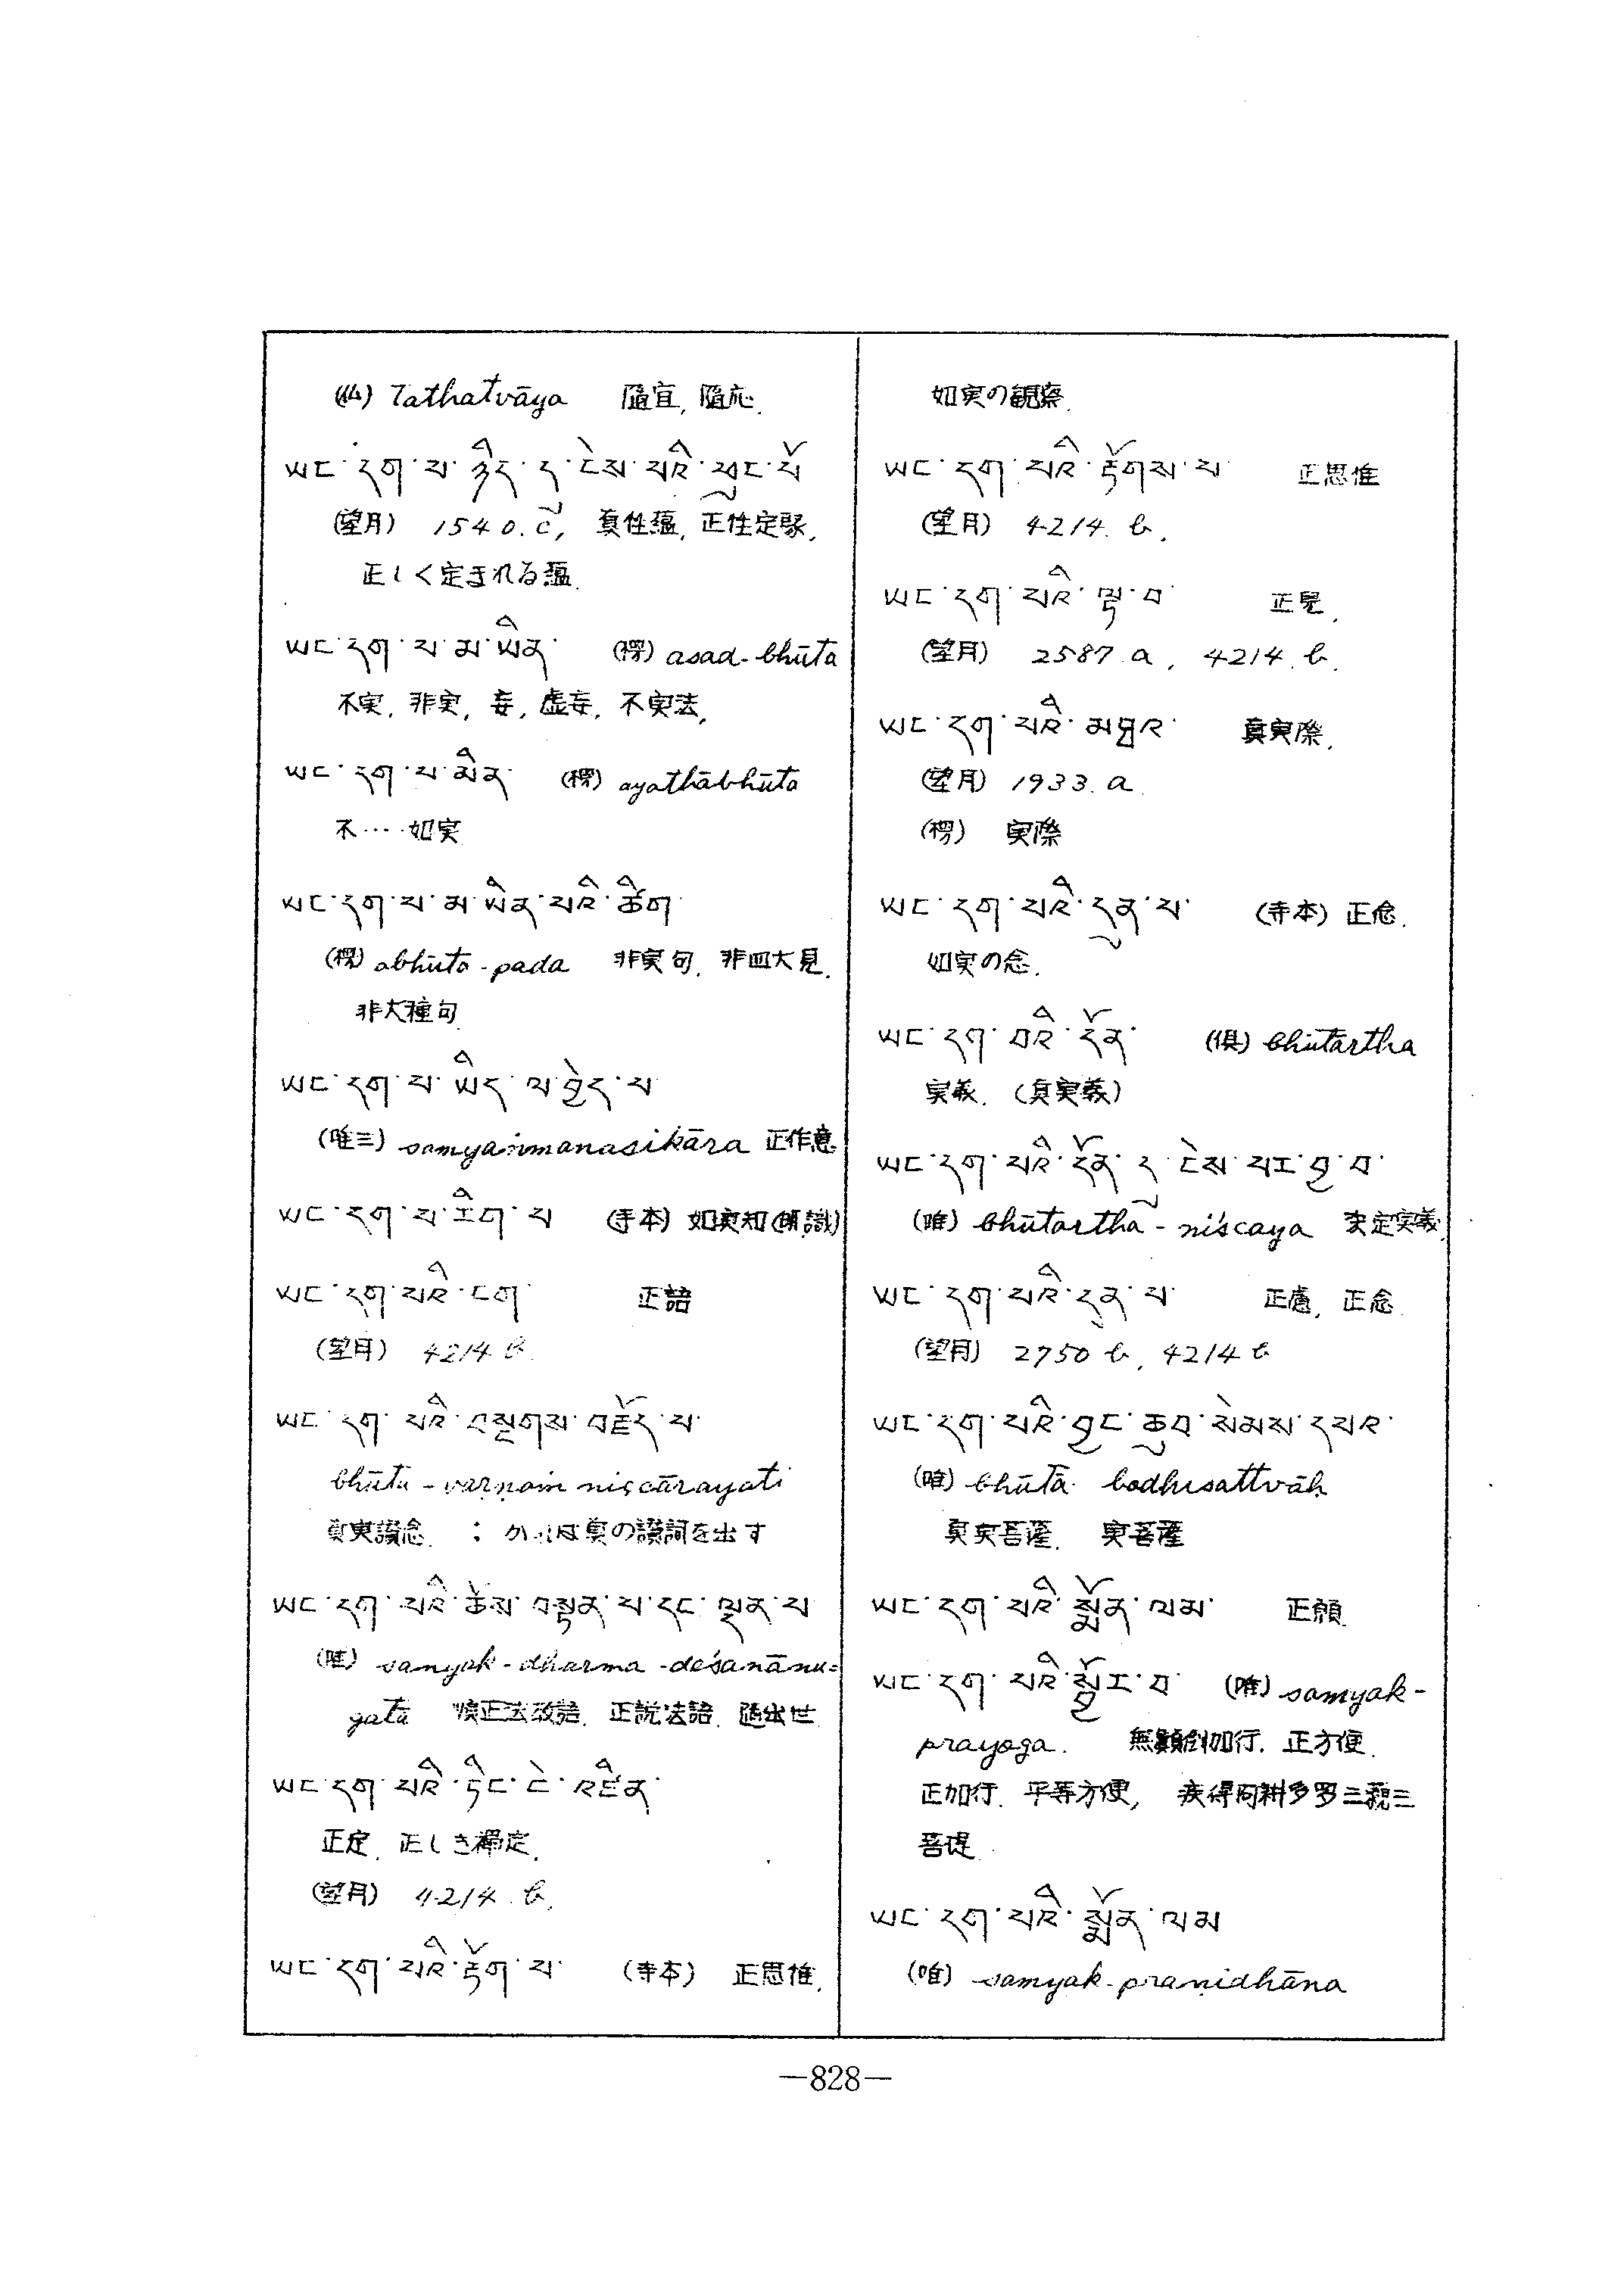 (仏) Tathatvāya 隨宜, 隨応.
ཡང་དག་པ་ཉིད་དུ་ངེས་པའི་ཕུང་པོ
(望月) 1540.c, 真性蘊, 正性定聚,
正しく定まれる蘊.
ཡང་དག་པ་མ་ཡིན་ (楞) asad-bhūta
不実, 非実, 妄, 虚妄, 不実法,
ཡང་དག་པ་མིན་ (楞) ayathābhūta
不‥‥如実
ཡང་དག་པ་མ་ཡིན་པའི་ཚིག་
(楞) abhūta-pada 非実句, 非四大見,
非大種句
ཡང་དག་པ་ཡིད་ལ་བྱེད་པ་
(唯三) samyaṅmanasikāra 正作意
ཡང་དག་པ་རིག་པ (寺本) 如実知
ཡང་དག་པའི་ངག་ 正語
(望月) 4214 b.
ཡང་དག་པའི་བསྔགས་བརྗོད་པ་
bhūta-varṇaṁ niścārayati
真実讃念. : かれは実の讃詞を出す
ཡང་དག་པའི་ཆོས་བསྟན་པ་དང་ལྡན་པ
(唯) samyak-dharma-deśanānu=
gatā 正説法語.
ཡང་དག་པའི་ཏིང་ངེ་འཛིན་
正定. 正しき禅定.
(望月) 4214.b.
ཡང་དག་པའི་རྟོག་པ་ (寺本) 正思惟.
如実の観察.
ཡང་དག་པའི་རྟོགས་པ་ 正思惟
(望月) 4214. b.
ཡང་དག་པའི་ལྟ་བ་ 正見.
(望月) 2587.a, 4214.b.
ཡང་དག་པའི་མཐའར་ 真実際.
(望月) 1933.a.
(楞) 実際
ཡང་དག་པའི་དྲན་པ་ (寺本) 正念.
如実の念.
ཡང་དག་པའི་དོན་ (倶) bhūtārtha
実義. (真実義)
ཡང་དག་པའི་དོན་དུ་ངེས་པར་བྱ་བ་
(唯) bhūtartha-niścaya 決定実義.
ཡང་དག་པའི་དྲན་པ་ 正慮, 正念
(望月) 2750 b, 4214 b
ཡང་དག་པའི་བྱང་ཆུབ་སེམས་དཔའ་
(唯) bhūtā bodhisattvāḥ
真実菩薩. 実菩薩
ཡང་དག་པའི་སྨོན་ལམ་ 正願
ཡང་དག་པའི་སྦྱོར་བ་ (唯) samyak-
prayoga. 無顛倒加行. 正方便.
正加行. 平等方便, 疾得阿耨多羅三藐三
菩提.
ཡང་དག་པའི་སྨོན་ལམ
(唯) samyak-praṇidhāna
—828—